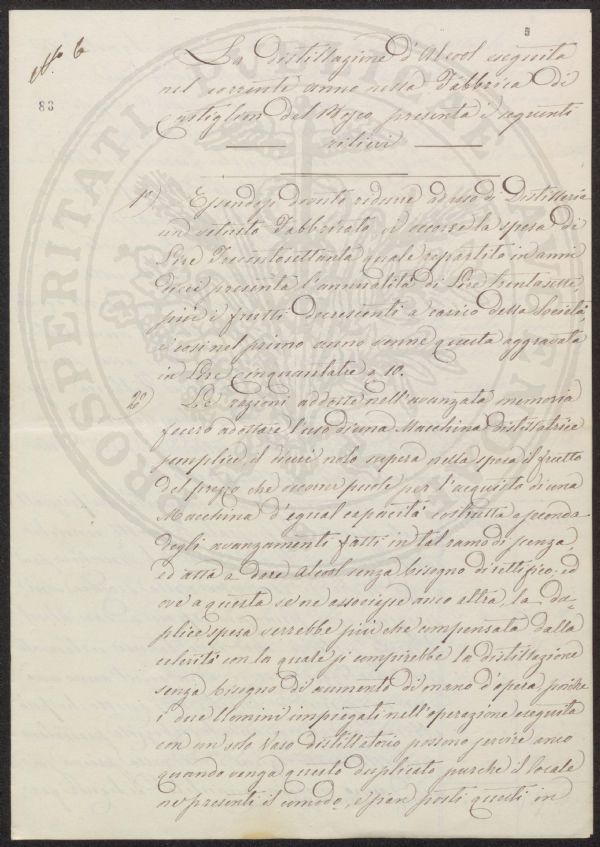 5
N.º 6
83
La distillazione d'Alcool eseguita
nel corrente anno nella Fabbrica di
Castiglion del Bosco, presenta i seguenti
rilievi
1º) Essendosi dovuto ridurre ad uso di Distilleria
un vetusto Fabbricato, vi occorse la spesa di
Lire Trecentosettanta quale repartito in anni
dieci presenta l'annualità di Lire trentasette,
più i frutti decrescenti a carico della Società,
e così nel primo anno venne questa aggravata
in Lire cinquantatre e 10.
2º) Le ragioni addotte nell'avanzata memoria
fecero adottare l'uso di una Macchina distillatrice
semplice, il di cui nolo supera nella spesa il frutto
del prezzo che occorrer puole per l'acquisto di una
Macchina d'egual capacità costrutta a seconda
degli avanzamenti fatti in tal ramo di scenza,
ed atta a dare Alcool senza bisogno di rettifico: ed
ove a questa se ne associasse anco altra, la du=
plice spesa verrebbe più che compensata dalla
celerità con la quale si compirebbe la distillazione
senza bisogno di aumento di mano d'opera, poiche
i due Uomini impiegati nell'operazione eseguita
con un solo Vaso distillatorio possono servire anco
quando venga questo duplicato purche il locale
ne presenti il comodo, e sien posti questi in
PROSPERITATI PUBLICAE